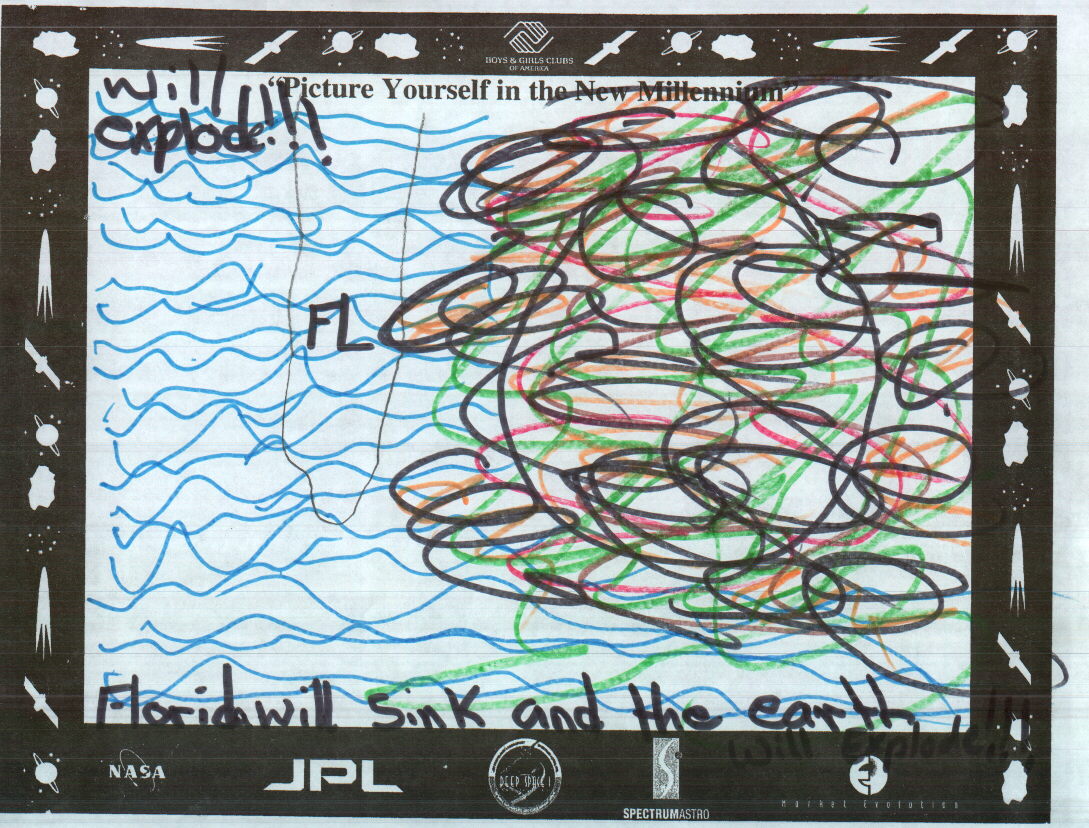 BOYS & GIRLS CLUBS
OF AMERICA
"Picture Yourself in the New Millennium"
will
explode!!!
FL
Florida will Sink and the earth
will Explode!!!
NASA
JPL
DEEP SPACE 1
SPECTRUMASTRO
Market Evolution